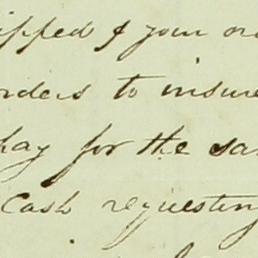 ipped & your or
rders to insure
pay for the sa
Cash requesting